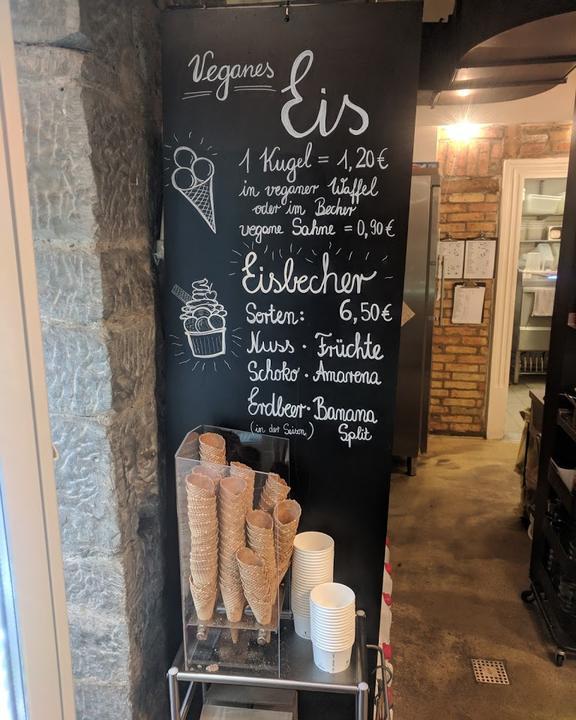 Veganes
Eis
1 Kugel = 1,20€
in veganer Waffel
oder im Becher
vegane Sahne = 0,90€
Eisbecher
Sorten: 6,50€
Nuss · Früchte
Schoko · Amarena
Erdbeer · Banana
(in der Saison) Split